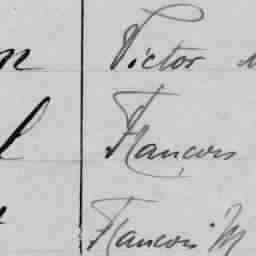 n Victor
l François
François M